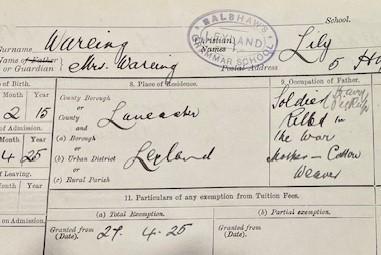 School.
BALSHAW'S
LEYLAND
GRAMMAR SCHOOL
Surname Wareing Christian Names Lily
Name of Father
or Guardian Mrs. Wareing Postal Address 5
of Birth. 8. Place of Residence. 9. Occupation of Father.
Month Year County Borough Soldier
2 15 or Lancaster Killed in
County The War
of Admission. and Mother – Cotton
Month Year (a) Borough Weaver
4 25 or
(b) Urban District Leyland
of Leaving. or
Month Year (c) Rural Parish
11. Particulars of any exemption from Tuition Fees.
(a) Total Exemption. (b) Partial exemption.
on Admission. Granted from 27. 4. 25 Granted from
(Date). (Date).